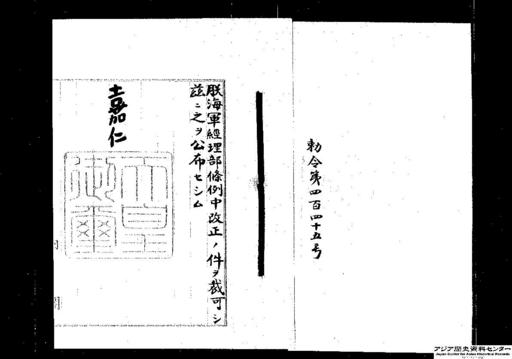 勅令第四百四十五号
朕海軍經理部條例中改正ノ件ヲ裁可シ
茲ニ之ヲ公布セシム
嘉仁
天皇御璽
アジア歴史資料センター
Japan Center for Asian Historical Records